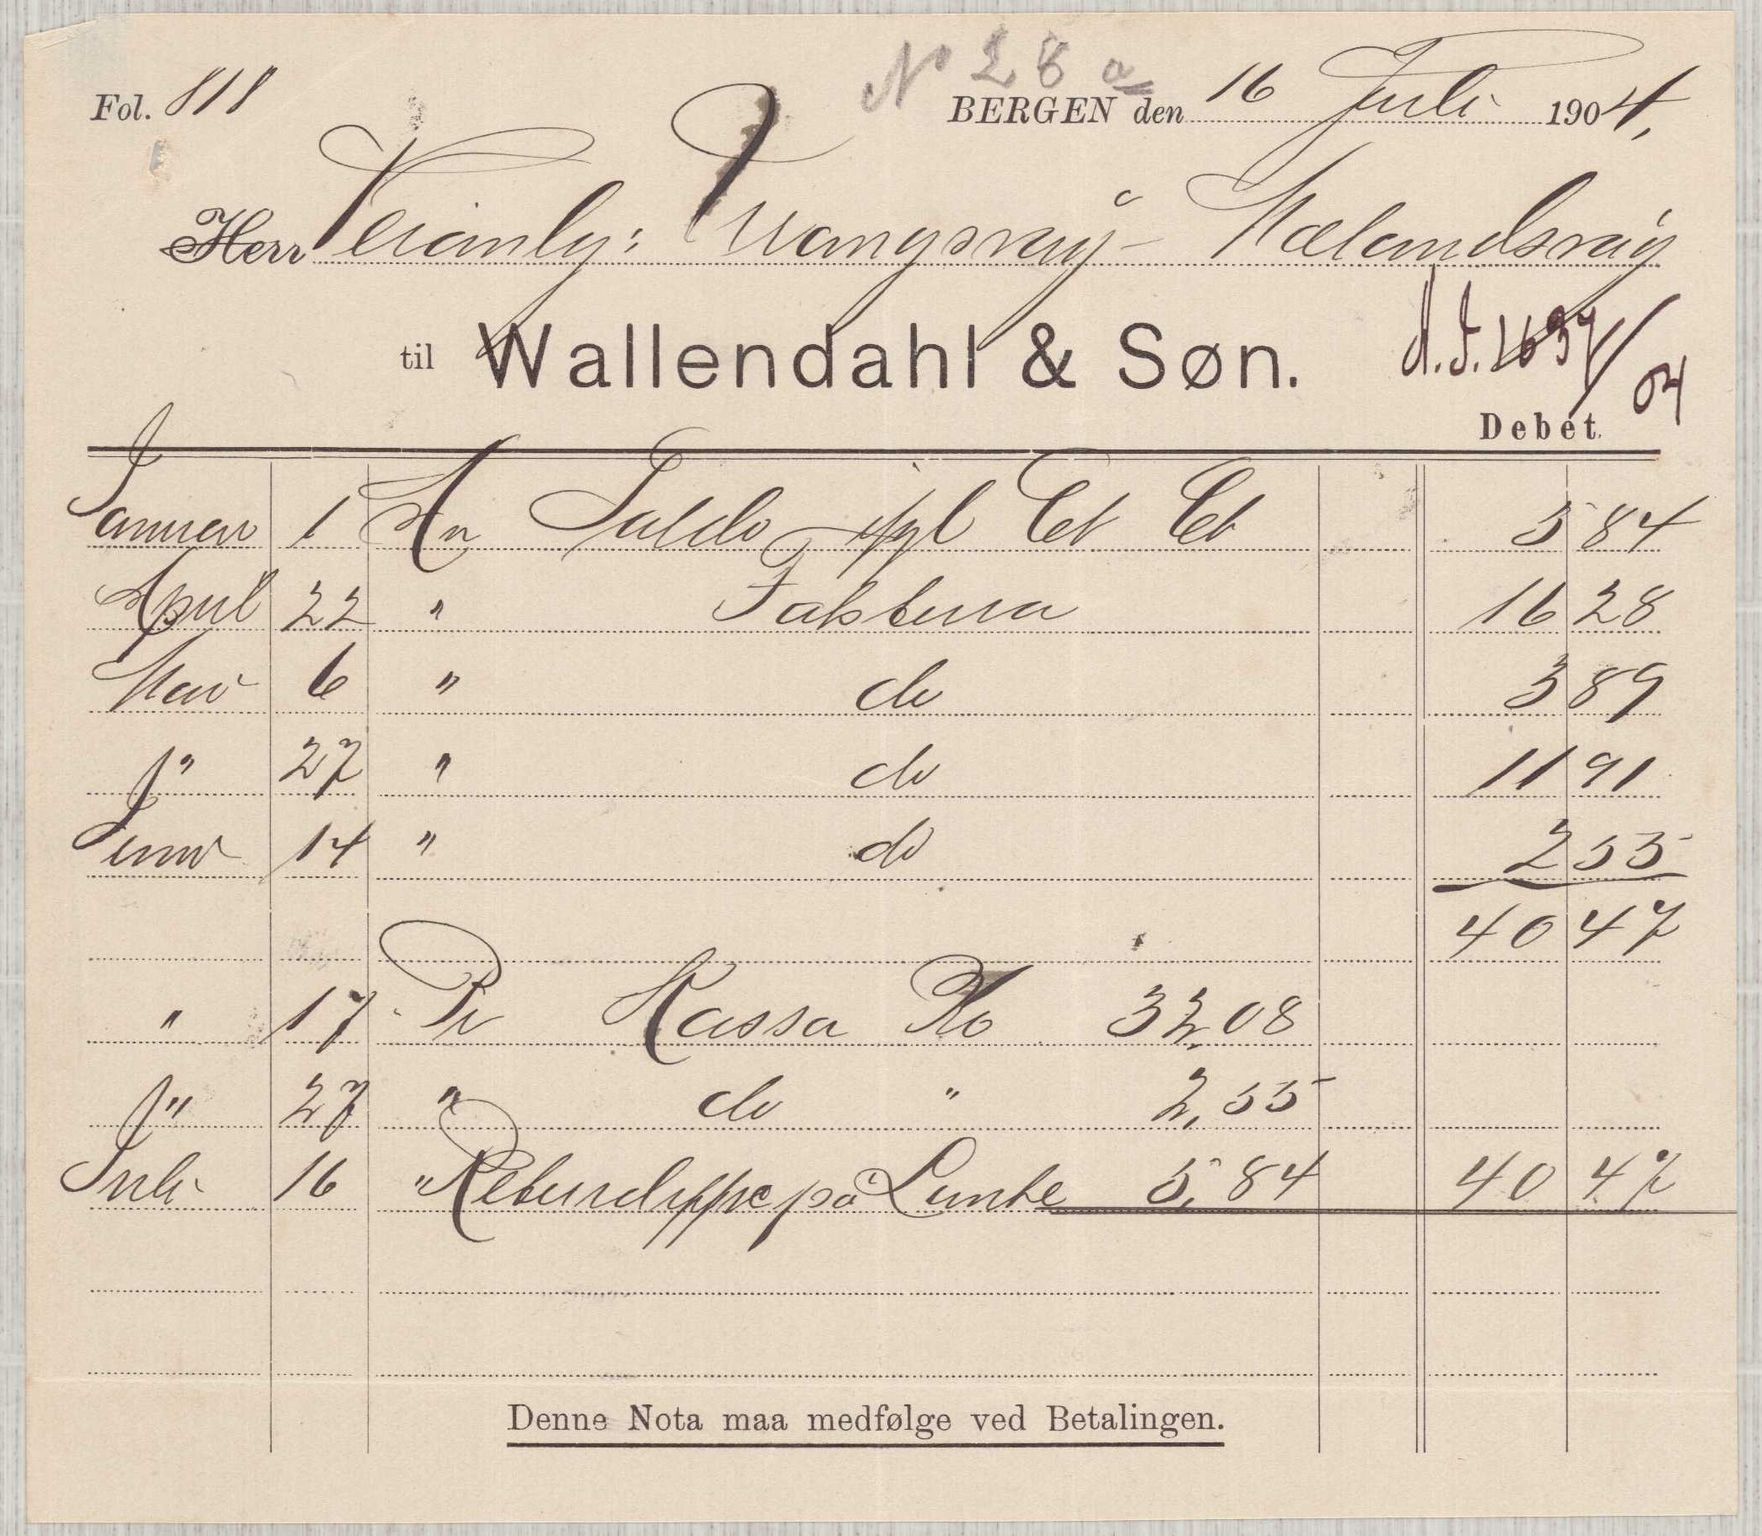 N 28a
Fol. 818 BERGEN den 16 Juli 1904.
Herr Veianlg: Tvangsvåg - Hælandsvåg
til Wallendahl & Søn.
d. J. 1637/04
Debet.
Januar 1 An Saldo ifgl Ct Ct 5 84
April 22 " Faktura 16 28
Mai 6 " do 3 89
" 27 " do 11 91
Juni 14 " do 2 55
40 47
" 17 Pr Kassa Ko 32,08
" 27 " do " 2,55
Juli 16 " på Lunte 5,84 40 47
Denne Nota maa medfølge ved Betalingen.